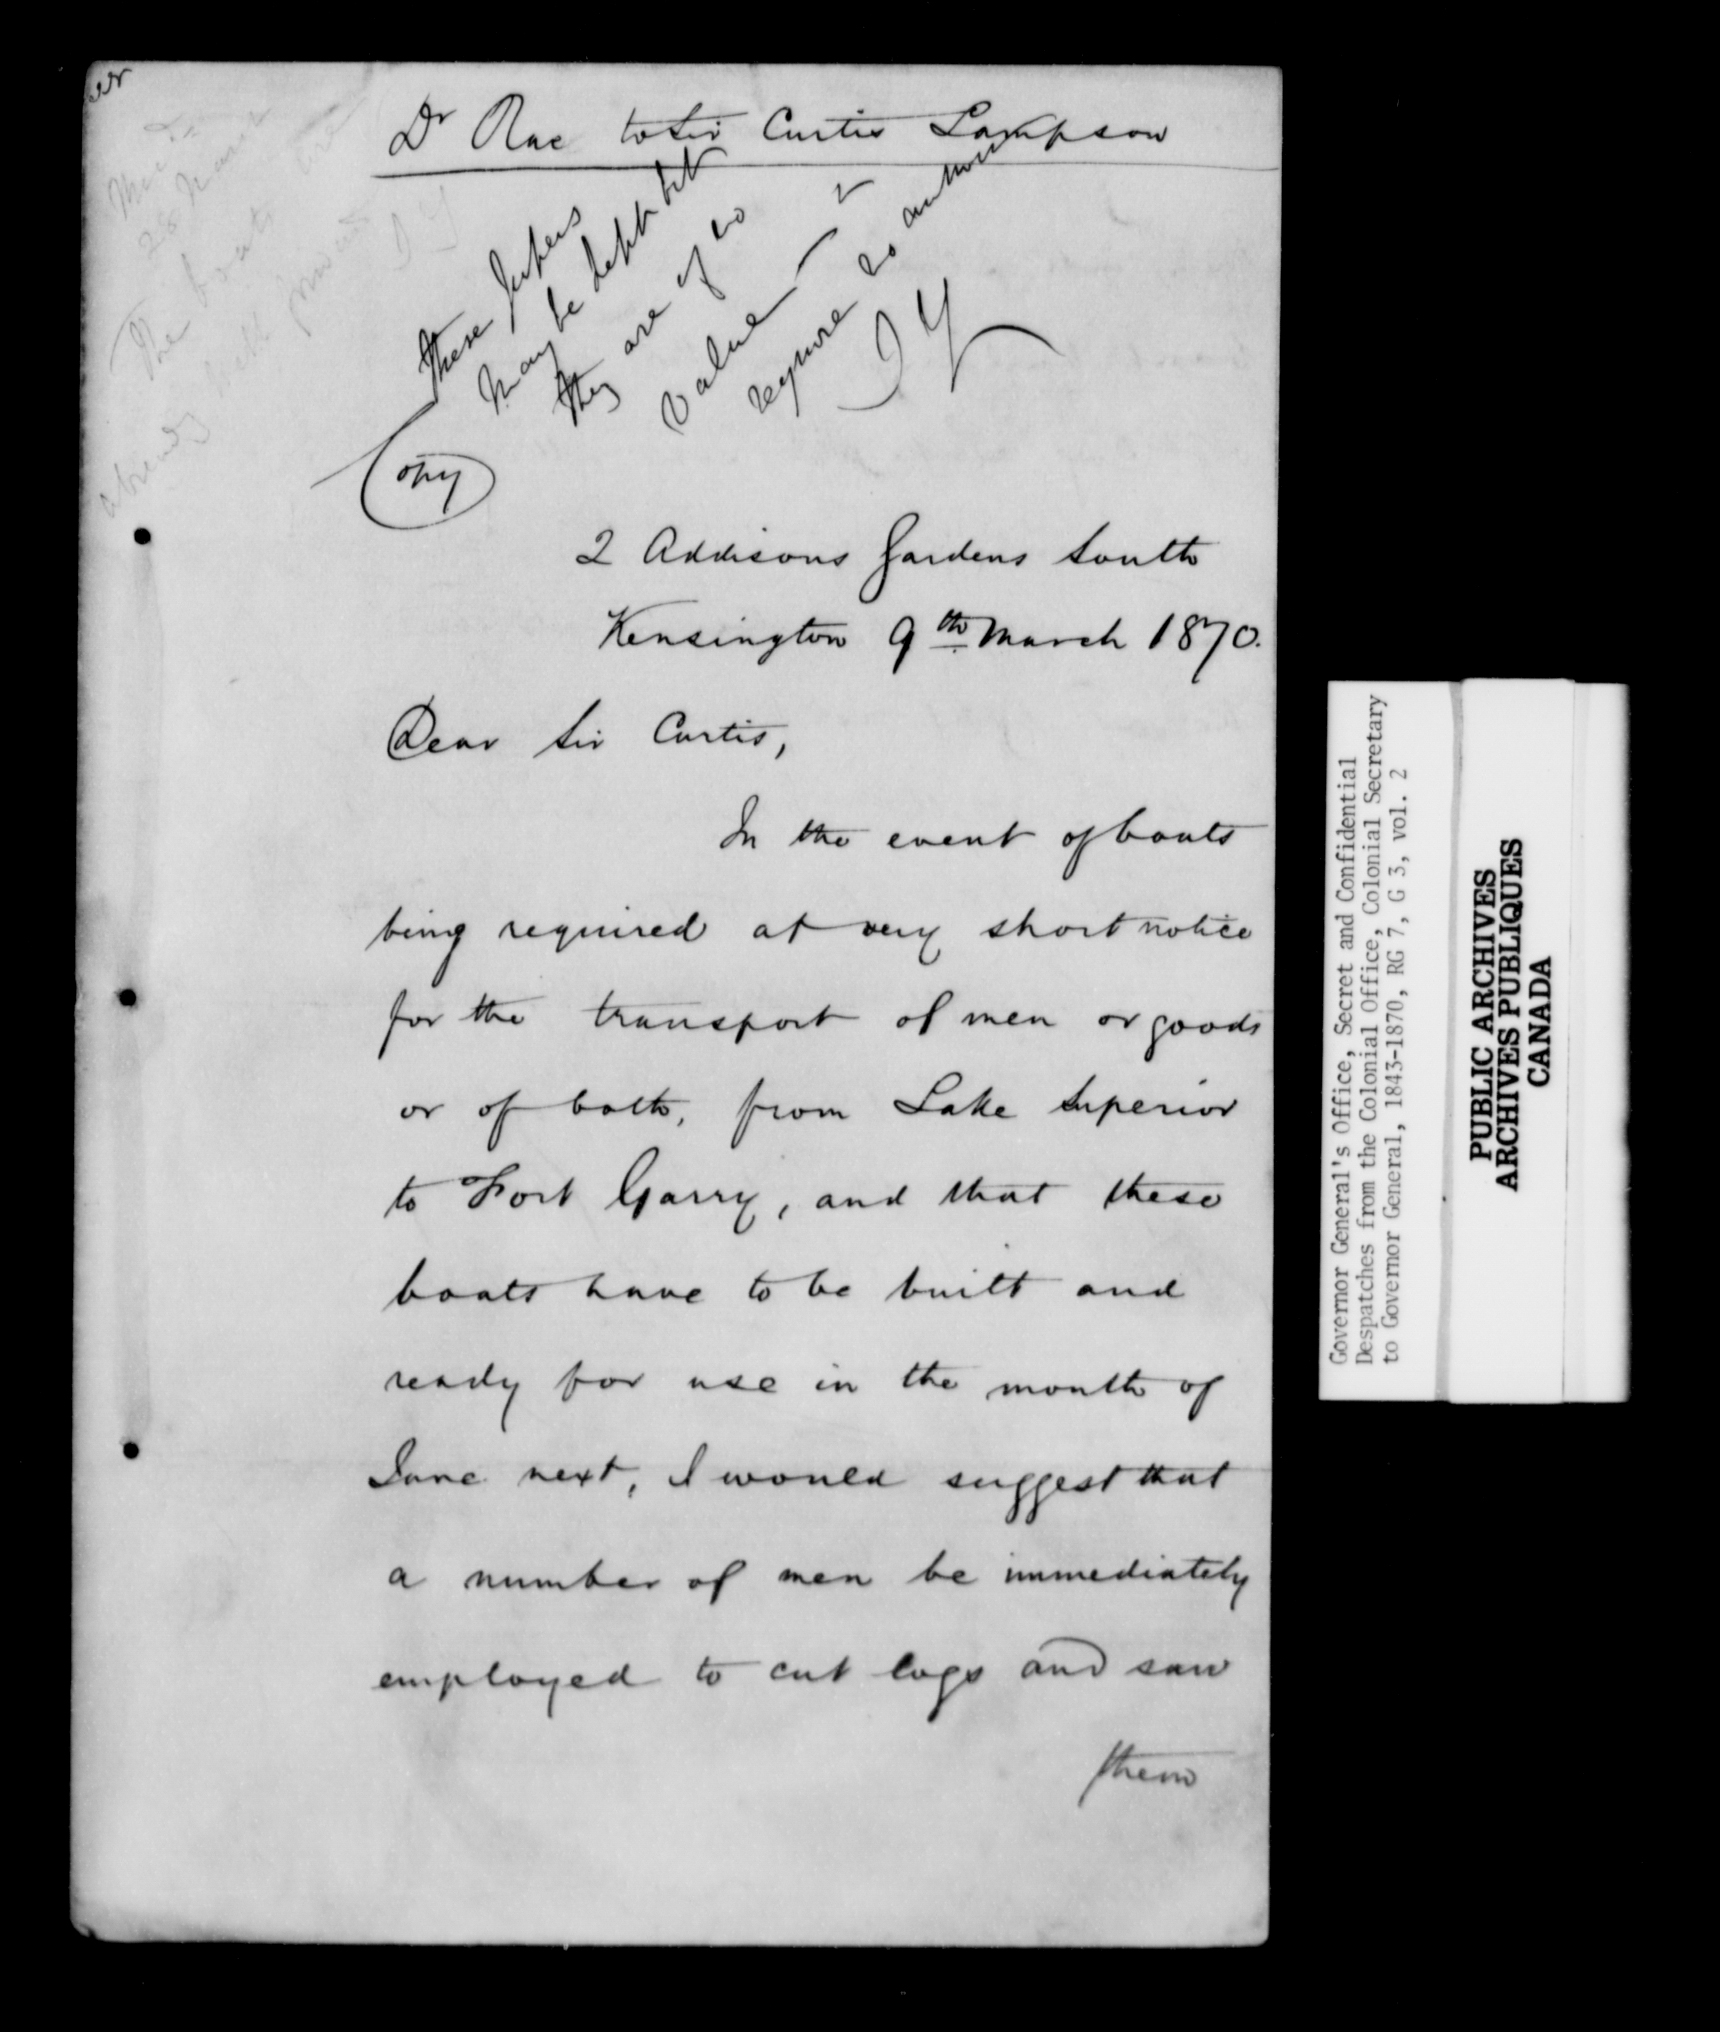 Dr Rae to Sir Curtis Lampson
These papers
may be kept but
they are of no
value &
require no answer
J Y
Copy
2 Addisons Gardens South
Kensington 9th March 1870.
Dear Sir Curtis,
In the event of boats
being required at very short notice
for the transport of men or goods
or of both, from Lake Superior
to Fort Garry, and that these
boats have to be built and
ready for use in the month of
June next, I would suggest that
a number of men be immediately
employed to cut logs and saw
them
Governor General's Office, Secret and Confidential
Despatches from the Colonial Office, Colonial Secretary
to Governor General, 1843-1870, RG 7, G 3, vol. 2
PUBLIC ARCHIVES
ARCHIVES PUBLIQUES
CANADA